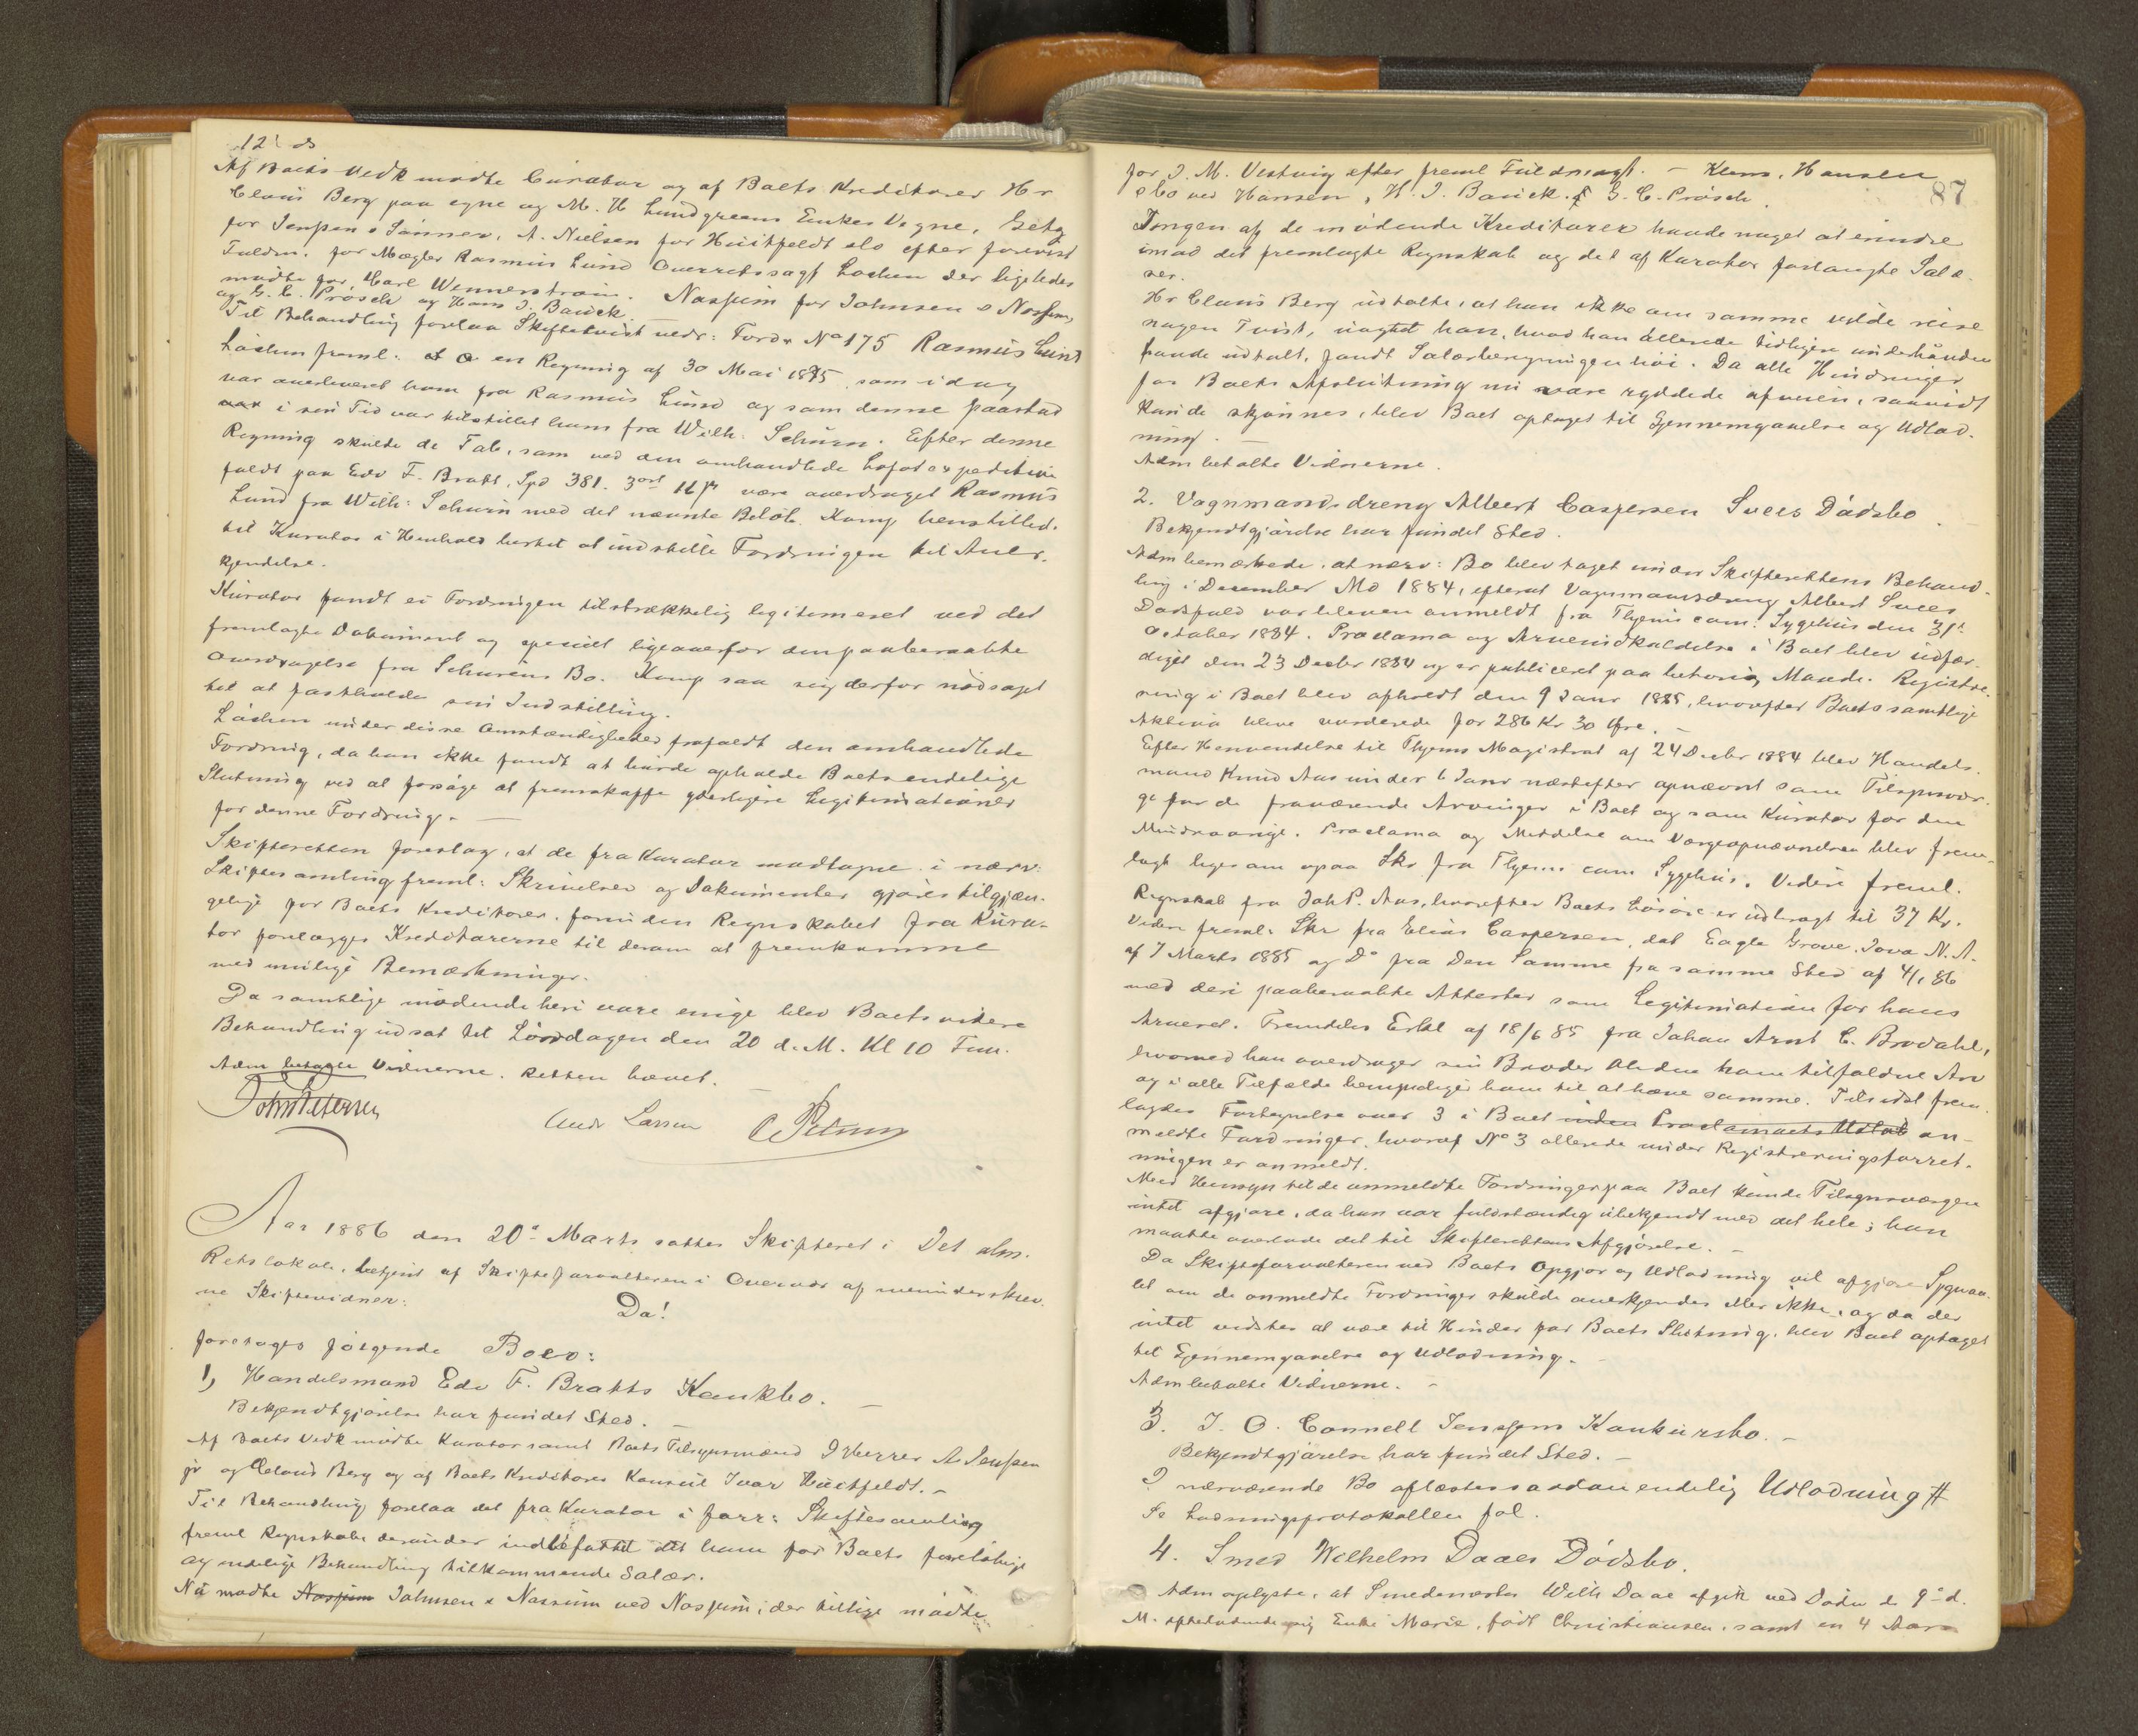 Af Boets Vedk mødte Curator og af Boets Kreditorer Hr
Claus Berg paa egne og M. H Lundgreens Enkes Vegne, Getz
for Jenssen & Sønner, A. Nielsen for Huitfeldt & Co efter forevist
Fuldm. for Mægler Rasmus Lund Overretssagf Lochen der ligeledes
mødte for Carl Wennerstrøm. Nossum for Johnsen & Nossum,
og G. C. Prøsch og Hans J. Bauck.
Til Behandling forelaa Skiftetvist vedr: Fordr No 175 Rasmus Lund
Lochen freml: a en Regning af 30 Mai 1875, som idag
var overleveret ham fra Rasmus Lund og som denne paastod
i sin Tid var tilstillet ham fra Wilh: Schürn. Efter denne
Regning skulde de Tab, som ved den omhandlede Lofotexpedition
faldt paa Edv F. Bratt, Spd 381. 3 ort 16 s være overdraget Rasmus
Lund fra Wilh: Schurn med det nævnte Beløb. Komp henstilled.
til Kurator i Henhold hertil at indstille Fordringen til Aner-
kjendelse.
Kurator fandt ei Fordringen tilstrækkelig legitimeret ved det
fremlagte Dokument og specielt ligeoverfor den paaberaabte
Overdragelse fra Schurens Bo. Komp saa sig derfor nødsaget
til at fastholde sin Indstilling.
Lochen under disse Omstændigheder frafaldt den omhandlede
Fordring, da han ikke fandt at burde opholde Boets endelige
Slutning ved at forsøge at fremskaffe yderligere Legitimationer
for denne Fordring. —
Skifteretten foreslog, at de fra Kurator modtagne i nærv:
Skiftesamling freml: Skrivelser og Dokumenter gjøres tilgjæn-
gelige for Boets Kreditorer, forinden Regnskabet fra Kura-
tor forelægges Kreditorerne til derom at fremkomme
med mulige Bemærkninger.
Da samtlige mødende heri vare enige blev Boets videre
Behandling udsat til Lørdagen den 20 d. M. Kl 10 Fm.
Adm betalte Vidnerne. Retten hævet.
John Petersen
Andr Larsen C Petersen
Aar 1886 den 20de Marts sattes Skifteret i Det alm.
Retslokale, betjent af Skifteforvalteren i Overvær af meunderskrev-
ne Skiftevidner:
Da!
foretoges følgende Boer:
1, Handelsmand Edv F. Bratts Konkbo. —
Bekjendtgjørelse har fundet Sted. —
Af Boets Vedk mødte Kurator samt Boets Tilsynsmænd Dherrer A Jenssen
jr og Claus Berg og af Boets Kreditorer Konsul Ivar Huitfeldt. —
Til Behandling forelaa det fra Kurator i forr: Skiftesamling
freml Regnskab derunder indbefattet det ham for Boets foreløbige
og endelige Behandling tilkommende Salær.
Nu mødte Nossum Johnsen & Nossum ved Nossum, der tillige mødte
87
for J. M. Vestvig efter freml Fuldmagt. — Klem, Hansen
& Co ved Hansen, H. J. Bauck. & G. C. Prøsch.
Ingen af de mødende Kreditorer havde noget at erindre
imod det fremlagte Regnskab og det af Kurator forlangte Salæ-
rer.
Hr Claus Berg udtalte, at han ikke om samme vilde reise
nogen Tvist, uagtet han, hvad han allerede tidligere underhaanden
havde udtalt, fandt Salærberegningen høi. Da alle Hindringer
for Boets Afslutning nu vare ryddede afveien, saavidt
kunde skjønnes, blev Boet optaget til Gjennemgaaelse og Udlod-
ning. —
Adm betalte Vidnerne.
2. Vognmandsdreng Albert Caspersen Svees Dødsbo.
Bekjendtgjørelse har fundet Sted.
Adm bemærkede, at nærv: Bo blev taget under Skifterettens Behand-
ling i December Md 1884, efterat Vognmandsdreng Albert Svees
Dødsfald var bleven anmeldt fra Thjems com: Sygehus den 31te
October 1884. Proclama og Arveindkaldelse i Boet blev udfær-
diget den 23 Decbr 1884 og er publiceret paa lovlig Maade. Registre-
ring i Boet blev afholdt den 9 Janr 1885, hvorefter Boets samtlige
Aktiva bleve vurderede for 286 Kr 30 Øre. —
Efter Henvendelse til Thjems Magistrat af 24 Decbr 1884 blev Handels-
mand Knud Aas under 6 Janr næstefter opnævnt som Tilsynsvær-
ge for de fraværende Arvinger i Boet og som Kurator for den
Mindreaarige. Proclama og Meddelse om Værgeopnævnelsen blev frem-
lagt ligesom ogsaa Skr fra Thjems com Sygehus. Videre freml.
Regnskab fra Joh P. Aas, hvorefter Boets Løsøre er udbragt til 37 Kr.
Videre freml: Skr fra Elias Caspersen, dat Eagle Grove, Iova N. A.
af 7 Marts 1885 og Do fra Den Samme fra samme Sted af 4/1 86
med deri paaberaabte Attester som Legitimation for hans
Arveret. Fremdeles Erkl af 18/6 85 fra Johan Arnt C. Brodahl,
hvormed han overdrager sin Broder al den ham tilfaldne Arv
og i alle Tilfælde bemyndiger ham til at hæve samme. Tilsidst frem-
lagdes Fortegnelse over 3 i Boet inden Proclamaets Udløb an-
meldte Fordringer, hvoraf No 3 allerede under Registreringsforret-
ningen er anmeldt.
Med Hensyn til de anmeldte Fordringer paa Boet kunde Tilsynsværgen
intet afgjøre, da han var fuldstændig ubekjendt med det hele; han
maatte overlade det til Skifterettens Afgjørelse. —
Da Skifteforvalteren ved Boets Opgjør og Udlodning vil afgjøre Spørgsmaa-
let om de anmeldte Fordringer skulde anerkjendes eller ikke, og da der
intet vidstes at være til Hinder for Boets Slutning, blev Boet optaget
til Gjennemgaaelse og Udlodning. —
Adm betalte Vidnerne. —
3. J. O. Connell Jenssens Konkursbo. —
Bekjendtgjørelse har fundet Sted. —
I nærværende Bo aflæstes saadan endelig Udlodning #
Se Lodningsprotokollen fol.
4. Smed Wilhelm Daaes Dødsbo.
Adm oplyste, at Smedemester Wilh Daae afgik ved Døden d. 9de d.
M. efterladende sig Enke Marie, født Christiansen, samt en 4 Aar